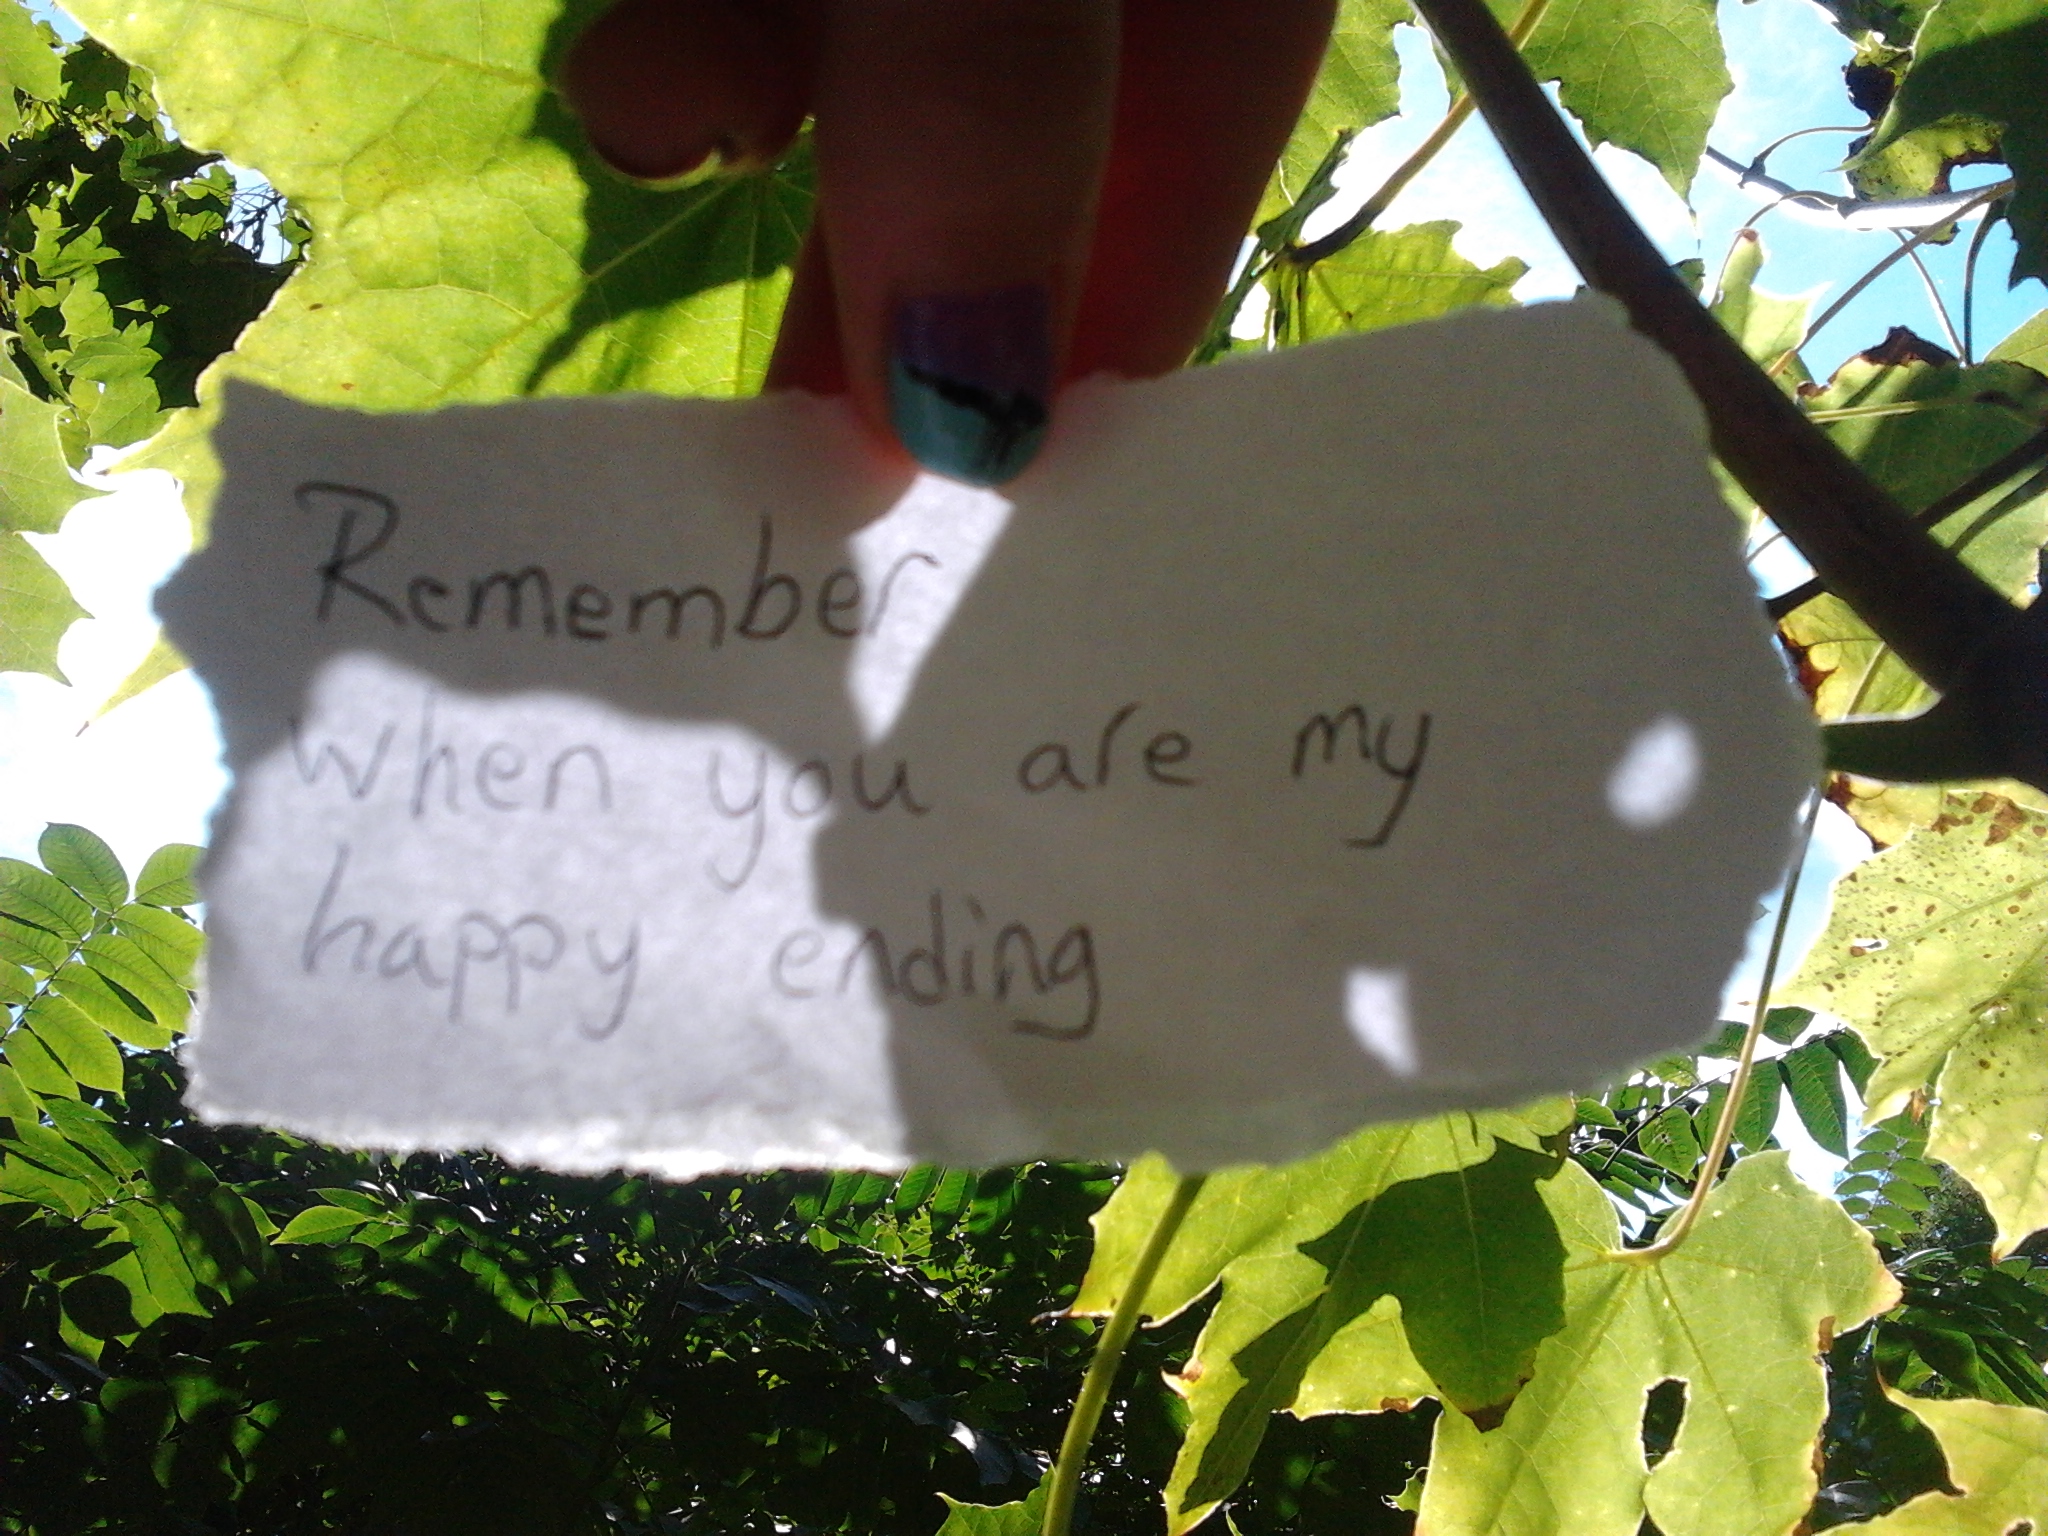 Remember
when you are my
happy ending